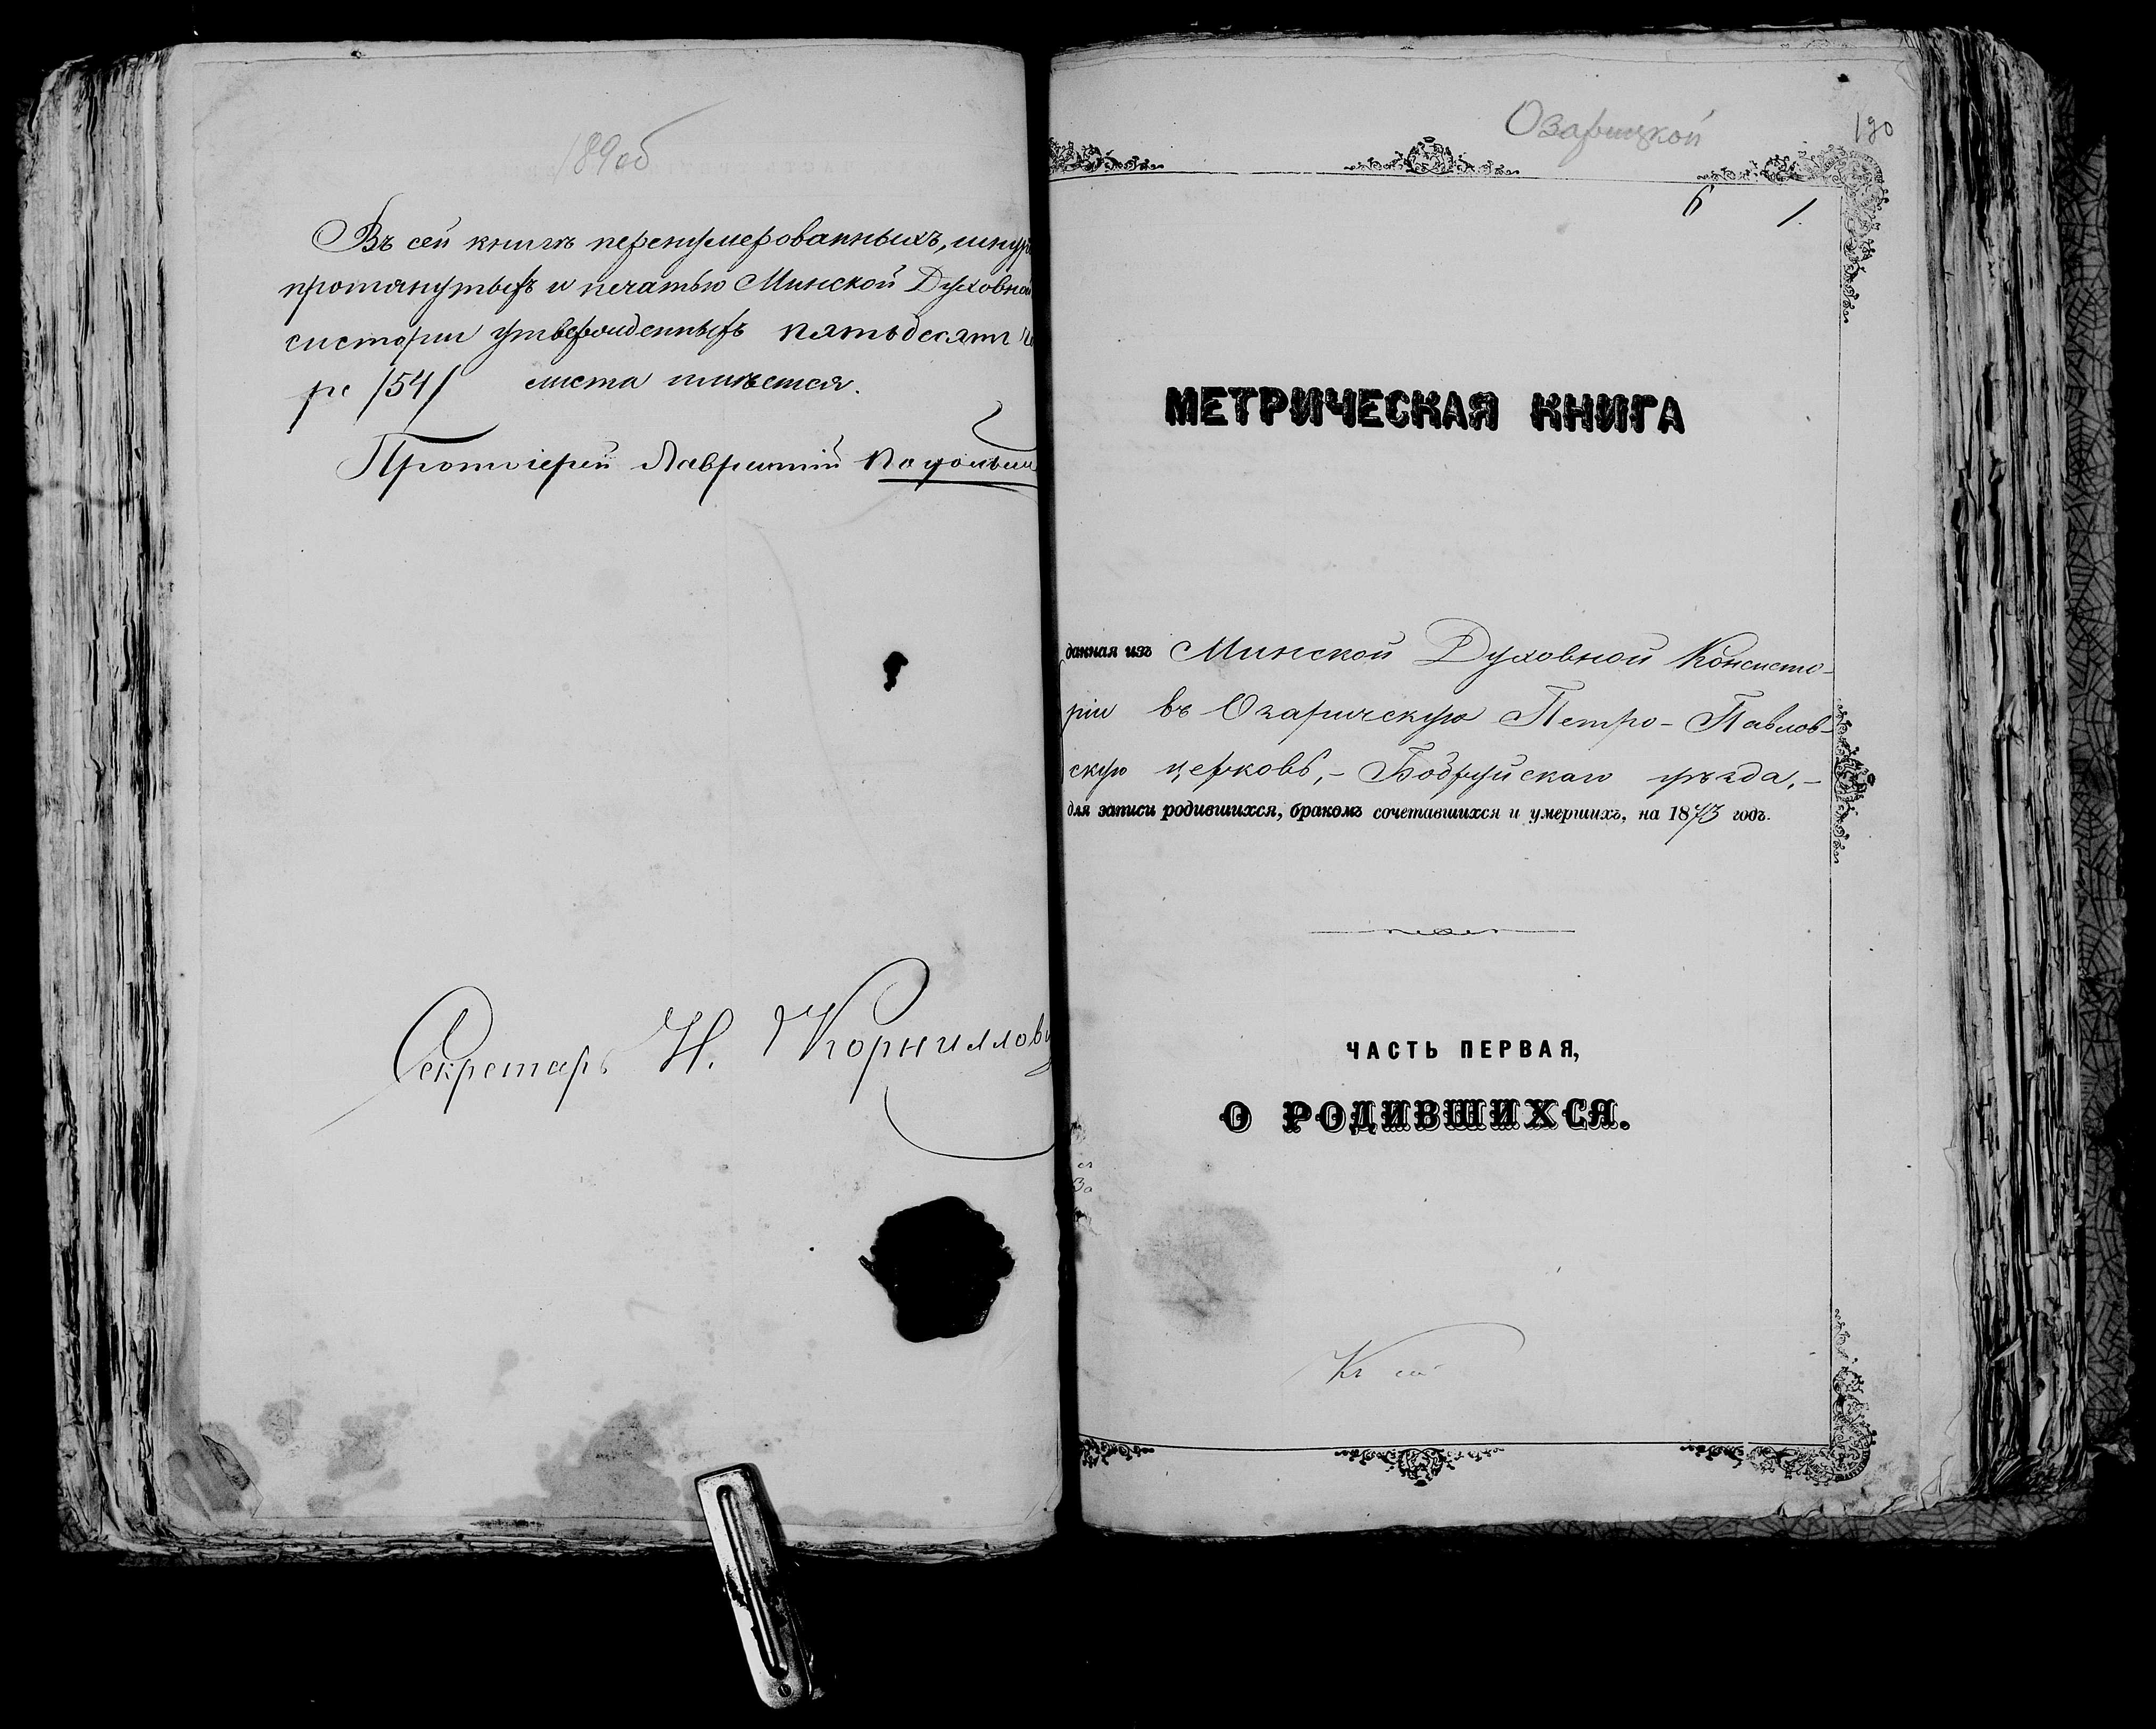 189об
Въ сей книгѣ перенумерованныхъ, шнур
протянутыхъ и печатью Минской Духовной
систоріи утвержденныхъ пятьдесятъ че
ре /54/ листа имѣется.
Протоіерей Лаврентій
Секретарь Н. Корниллови
Озарицкой
190
6 1.
МЕТРИЧЕСКАЯ КНИГА
данная изъ Минской Духовной Консисто-
ріи въ Озаричскую Петро-Павлов-
скую церковь,- Бобруйскаго уѣзда,-
для записи родившихся, бракомъ сочетавшихся и умершихъ, на 1873 годъ.
ЧАСТЬ ПЕРВАЯ,
О РОДИВШИХСЯ.